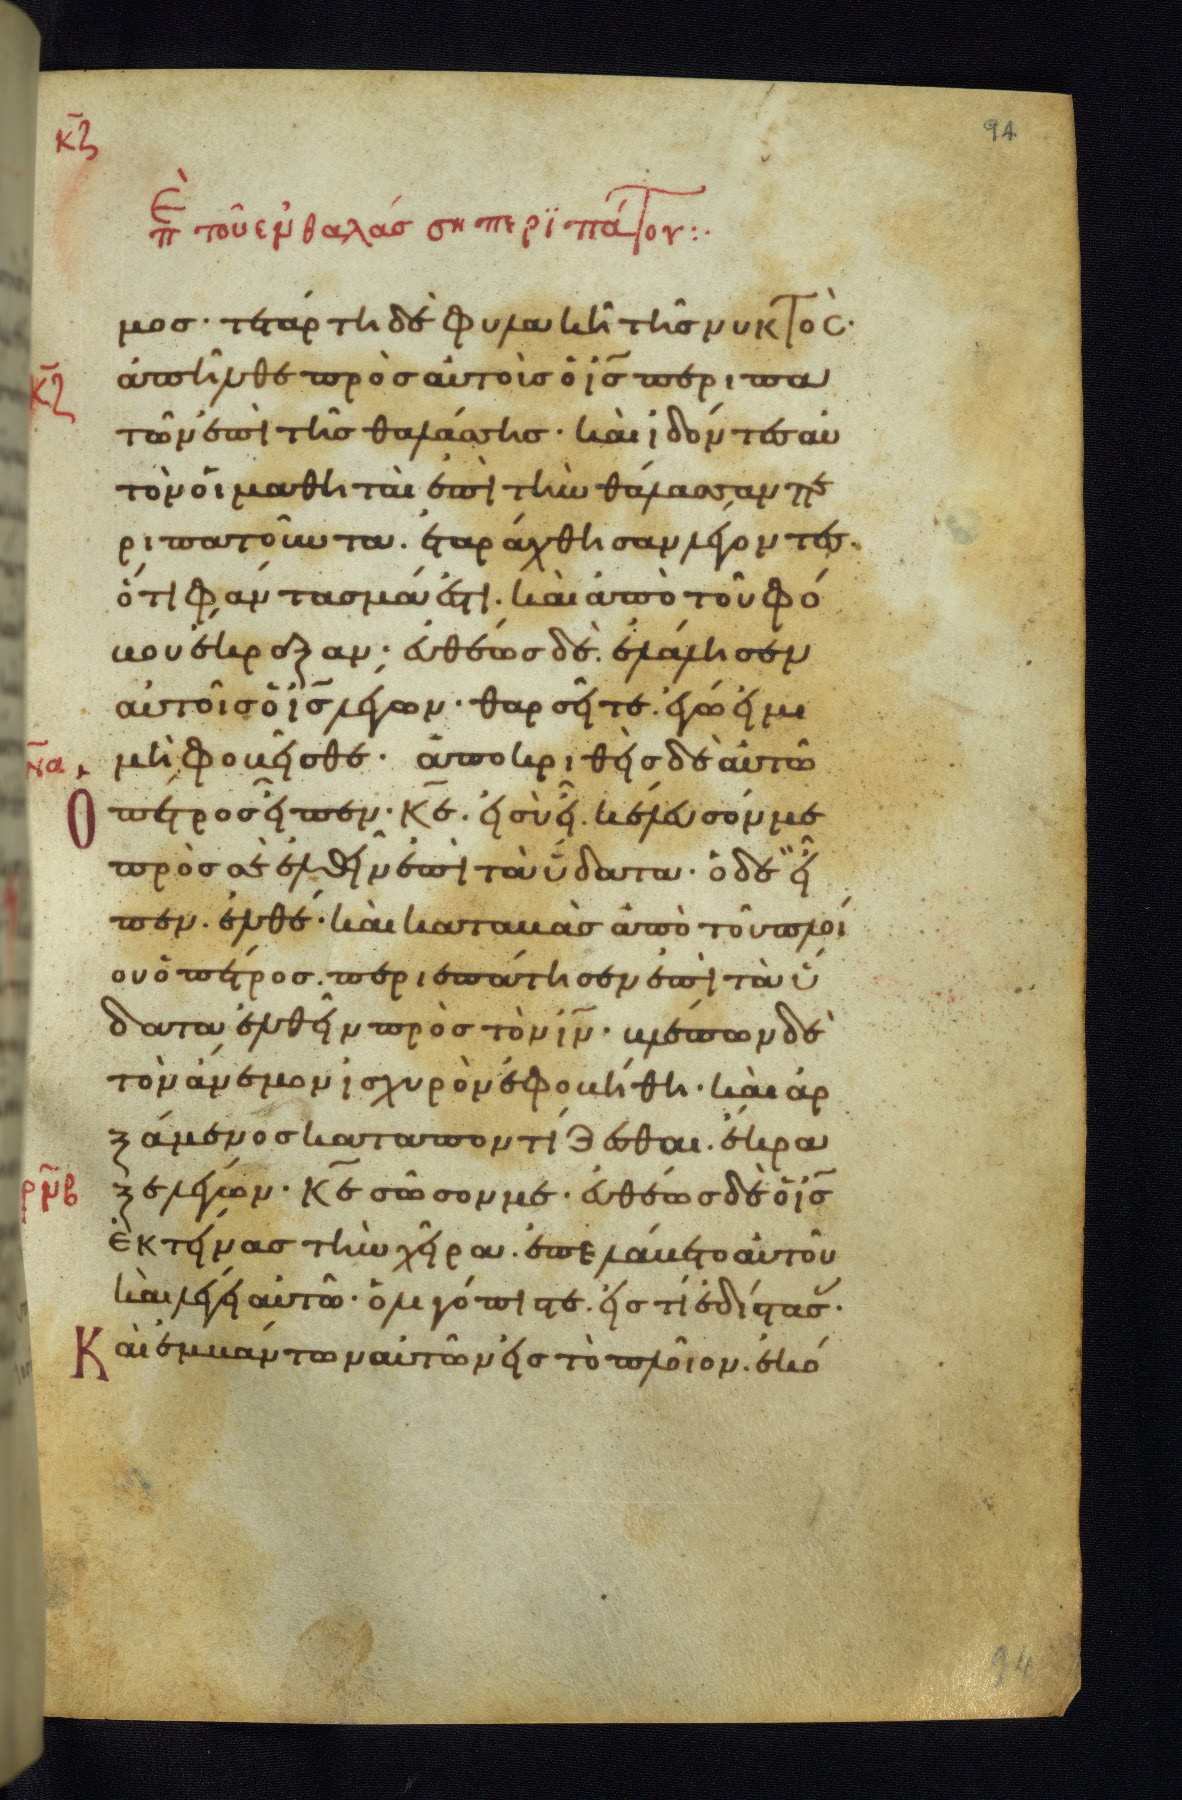 κ̄ζ
94
Ὲπ τοῦ ἐν θαλάσση περϊπάτου:·
μοσ· τετάρτη δὲ φυλακῆ τῆσ νυκτὸσ·
κ̄ζ ἀπῆλθε πρὸσ αὐτοὺσ ὁ ι̅σ̅ περιπα
τῶν ἐπὶ τῆσ θαλάσσησ· καὶ ἰδόντεσ αὐ
τὸν οἱ μαθηταὶ ἐπὶ τὴν θάλασσαν πε
ριπατοῦντα. ἐταράχθησαν λέγοντεσ.
ὅτι φάντασμά ἐστι. καὶ ἀπὸ τοῦ φό
βου ἔκραξαν· εὐθέωσ δὲ. ἐλάλησεν
αὐτοῖσ ὁ ι̅σ̅ λέγων· θαρσεῖτε. ἐγώ εἰμι
ν̄α μὴ φοβεῖσθε· ἀποκριθεὶσ δὲ αὐτῶ
Ὁ πέτροσ εἶπεν· κ̅ε̅. εἰ σὺ εἶ. κέλευσόν με
πρὸσ σὲ ἐλθεῖν ἐπὶ τὰ ὕδατα· ὁ δὲ εἶ
πεν. ἐλθέ· καὶ καταβὰσ ἀπὸ τοῦ πλοί
ου ὁ πέτροσ. περιεπάτησεν ἐπὶ τὰ ὕ
δατα ἐλθεῖν πρὸσ τὸν ι̅ν̅· βλέπων δὲ
τὸν ἄνεμον ἰσχυρὸν ἐφοβήθη· καὶ ἀρ
ξάμενοσ καταποντίζεσθαι. ἔκρα
ρ̄μβ ξε λέγων· κ̅ε̅ σῶσον με· εὐθέωσ δὲ ὁ ι̅σ̅
ἐκτείνασ τὴν χεῖρα. ἐπελάβετο αὐτοῦ
καὶ λέγει αὐτῶ· ὀλιγόπιστε. εἰσ τί ἐδίστασ·
Καὶ ἐμβάντων αὐτῶν εἰσ τὸ πλοῖον. ἐκό
94